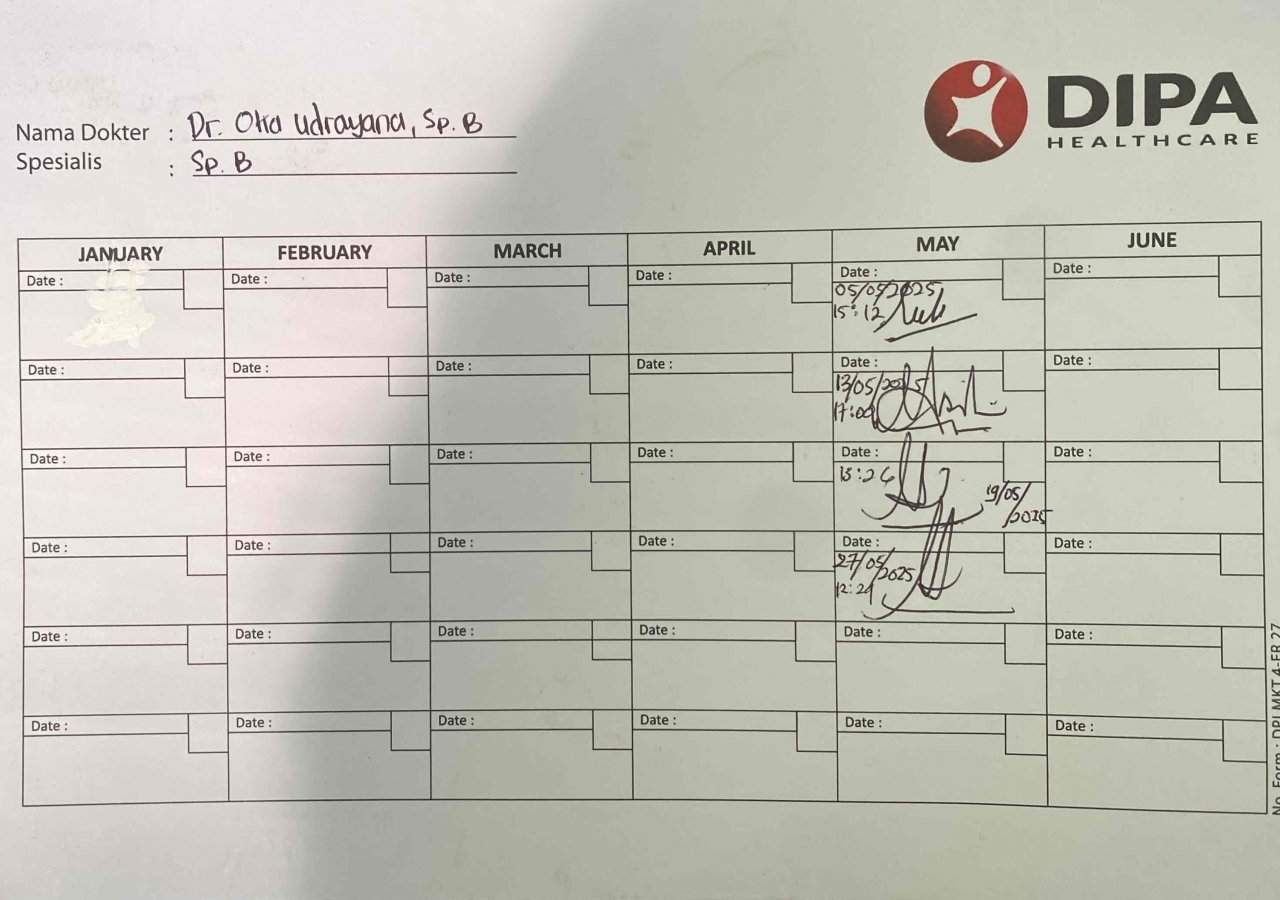 DIPA
HEALTHCARE
Nama Dokter : Dr. Oka Udrayana, Sp. B
Spesialis : Sp. B
JANUARY FEBRUARY MARCH APRIL MAY JUNE
Date : Date : Date : Date : Date : Date :
05/05/2025
15:12
Date : Date : Date : Date : Date : Date :
13/05/2025
17:00
Date : Date : Date : Date : Date : Date :
15:26
19/05/2025
Date : Date : Date : Date : Date : Date :
27/05/2025
12:29
Date : Date : Date : Date : Date : Date :
Date : Date : Date : Date : Date : Date :
No. Form : DPI.MKT.4-FR.27